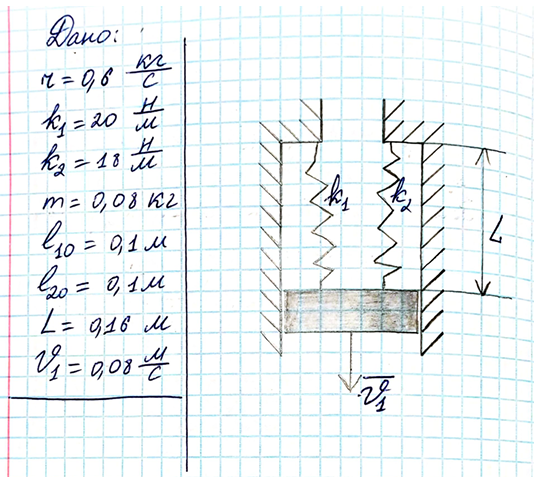 Дано:
r = 0,6 кг/с
k₁ = 20 Н/м
k₂ = 18 Н/м
m = 0,08 кг
l₁₀ = 0,1 м
l₂₀ = 0,1 м
L = 0,16 м
V₁ = 0,08 м/с
k₁ k₂
L
V₁